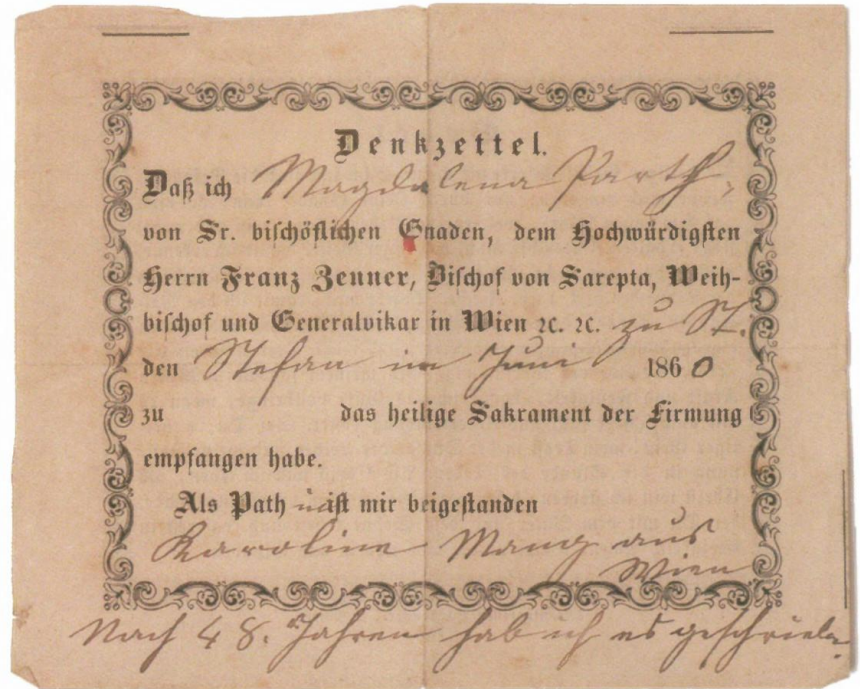 Denkzettel.
Daß ich Magdalena Parth,
von Sr. bischöflichen Gnaden, dem Hochwürdigsten
Herrn Franz Zenner, Bischof von Sarepta, Weih-
bischof und Generalvikar in Wien ꝛc. ꝛc. zu St.
den Stefan im Juni 1860
zu das heilige Sakrament der Firmung
empfangen habe.
Als Path in ist mir beigestanden
Karoline Mang aus
Wien
Nach 48. Jahren hab ich es geschrieben.